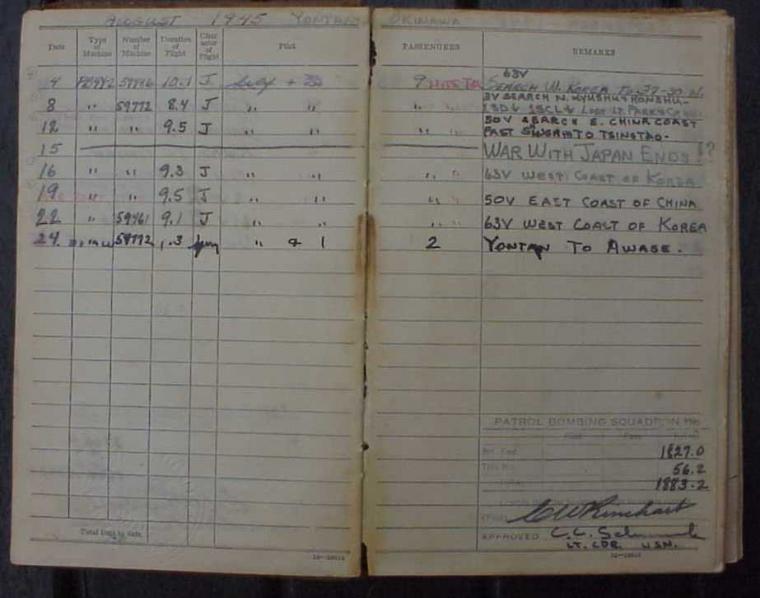 AUGUST 1945 YONTAN OKINAWA
Date Type of Machine Number of Machine Duration of Flight Character of Flight Pilot PASSENGERS REMARKS
63V
4 PB4Y2 59446 10.1 J Self + 9 SEARCH W. KOREA TO 37-30 N.
8 " 59772 8.4 J " " " " SV SEARCH N. KYUSHU & HONSHU-
& LOST LT. PARK
12 " " 9.5 J " " " " 50V SEARCH E. CHINA COAST
PAST TO TSINGTAO.
15 WAR WITH JAPAN ENDS!?
16 " " 9.3 J " " " " 63V WEST COAST OF KOREA
19 " " 9.5 J " " " " 50V EAST COAST OF CHINA
22 " 59461 9.1 J " " " " 63V WEST COAST OF KOREA
24 59772 1.3 " & 1 2 YONTAN TO AWASE.
PATROL BOMBING SQUADRON
1827.0
56.2
1883.2
C W Rinehart
APPROVED C. C.
LT. CDR. USN.
Total time to date,